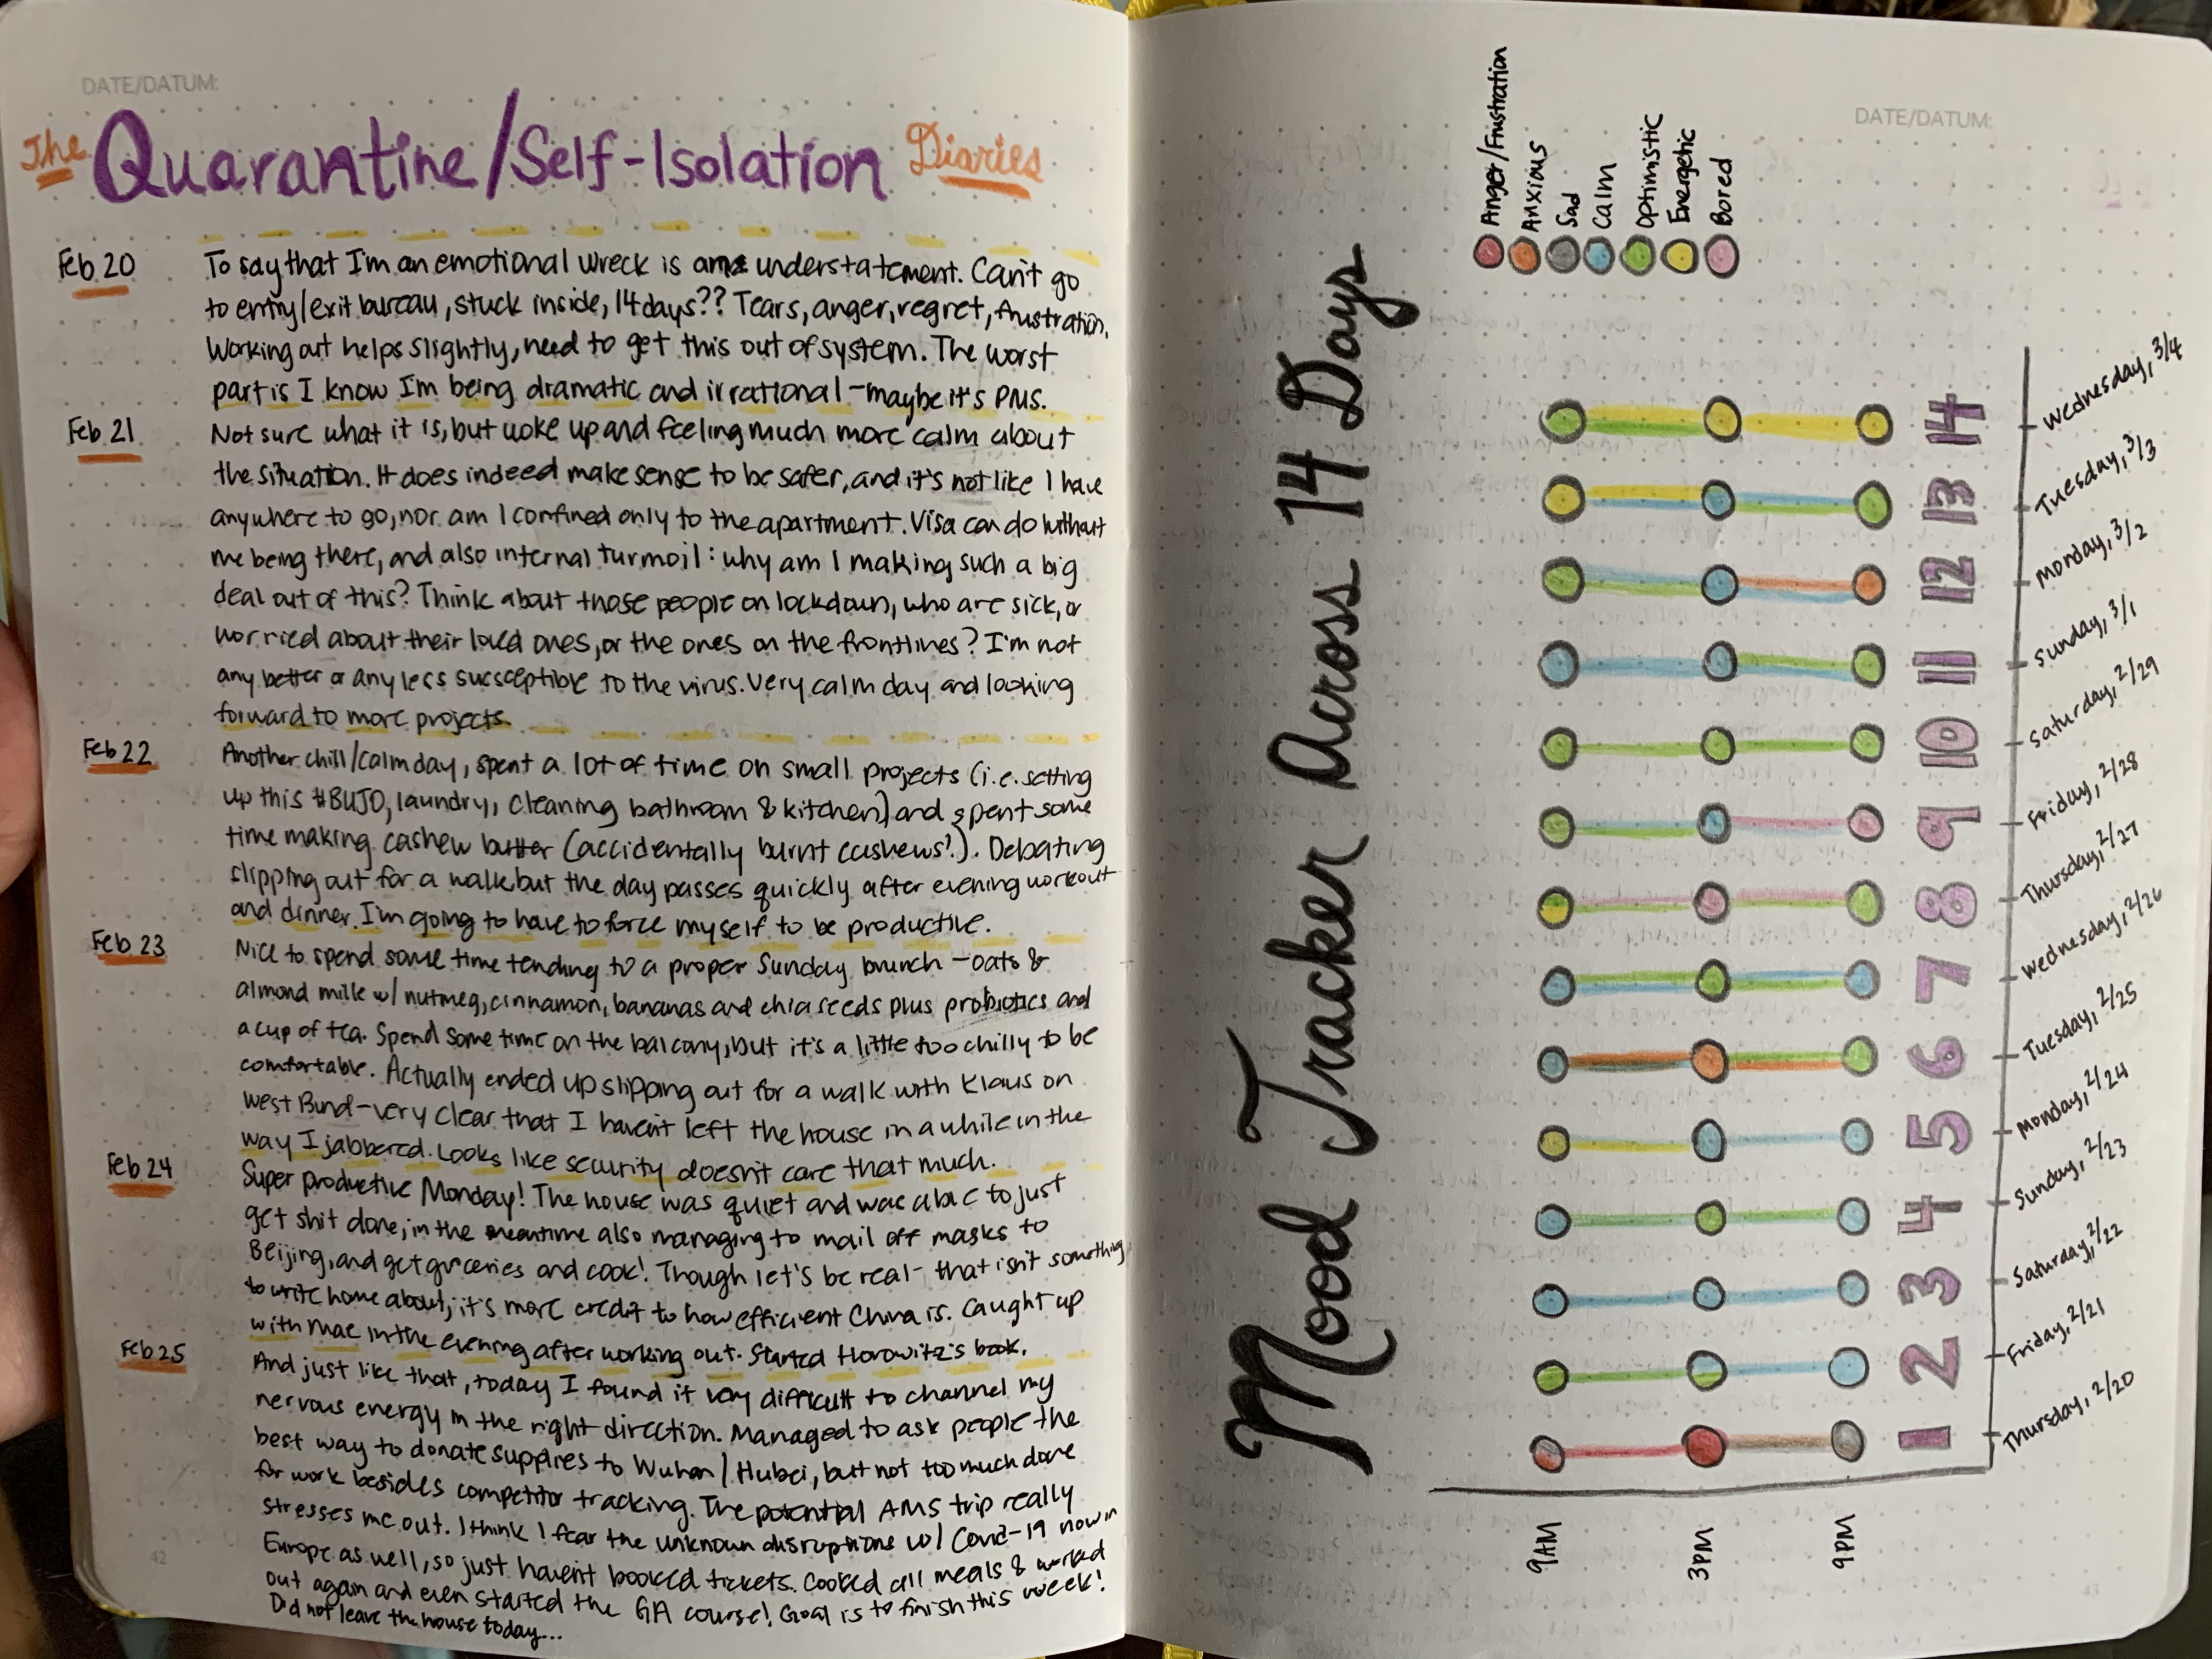 DATE/DATUM:
The Quarantine/Self-Isolation Diaries
Feb 20
To say that I'm an emotional wreck is an understatement. Can't go
to entry/exit bureau, stuck inside, 14 days?? Tears, anger, regret, frustration.
Working out helps slightly, need to get this out of system. The worst
part is I know I'm being dramatic and irrational - maybe it's PMS.
Feb 21
Not sure what it is, but woke up and feeling much more calm about
the situation. It does indeed make sense to be safer, and it's not like I have
anywhere to go, nor am I confined only to the apartment. Visa can do without
me being there, and also internal turmoil: why am I making such a big
deal out of this? Think about those people on lockdown, who are sick, or
worried about their loved ones, or the ones on the frontlines? I'm not
any better or any less susceptible to the virus. Very calm day and looking
forward to more projects.
Feb 22
Another chill/calm day, spent a lot of time on small projects (i.e. setting
up this #BUJO, laundry, cleaning bathroom & kitchen) and spent some
time making cashew butter (accidentally burnt cashews!). Debating
slipping out for a walk but the day passes quickly after evening workout
and dinner. I'm going to have to force myself to be productive.
Feb 23
Nice to spend some time tending to a proper Sunday brunch - oats &
almond milk w/ nutmeg, cinnamon, bananas and chia seeds plus probiotics and
a cup of tea. Spend some time on the balcony, but it's a little too chilly to be
comfortable. Actually ended up slipping out for a walk with Klaus on
West Bund - very clear that I haven't left the house in a while in the
way I jabbered. Looks like security doesn't care that much.
Feb 24
Super productive Monday! The house was quiet and was able to just
get shit done, in the meantime also managing to mail off masks to
Beijing, and get groceries and cook! Though let's be real - that isn't something
to write home about; it's more credit to how efficient China is. Caught up
with Mae in the evening after working out. Started Horowitz's book.
Feb 25
And just like that, today I found it very difficult to channel my
nervous energy in the right direction. Managed to ask people the
best way to donate supplies to Wuhan / Hubei, but not too much done
for work besides competitor tracking. The potential AMS trip really
stresses me out. I think I fear the unknown disruptions w/ Covid-19 now in
Europe as well, so just haven't booked tickets. Cooked all meals & worked
out again and even started the GA course! Goal is to finish this week!
Did not leave the house today...
42
DATE/DATUM:
Mood Tracker Across 14 Days
Anger/Frustration
Anxious
Sad
Calm
Optimistic
Energetic
Bored
9AM
3PM
9PM
1
2
3
4
5
6
7
8
9
10
11
12
13
14
Thursday, 2/20
Friday, 2/21
Saturday, 2/22
Sunday, 2/23
Monday, 2/24
Tuesday, 2/25
Wednesday, 2/26
Thursday, 2/27
Friday, 2/28
Saturday, 2/29
Sunday, 3/1
Monday, 3/2
Tuesday, 3/3
Wednesday, 3/4
43